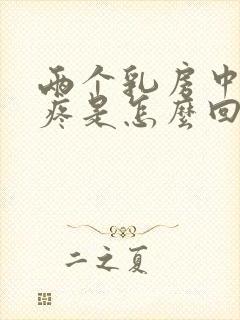 两个乳房中
疼是怎麼回
二之夏